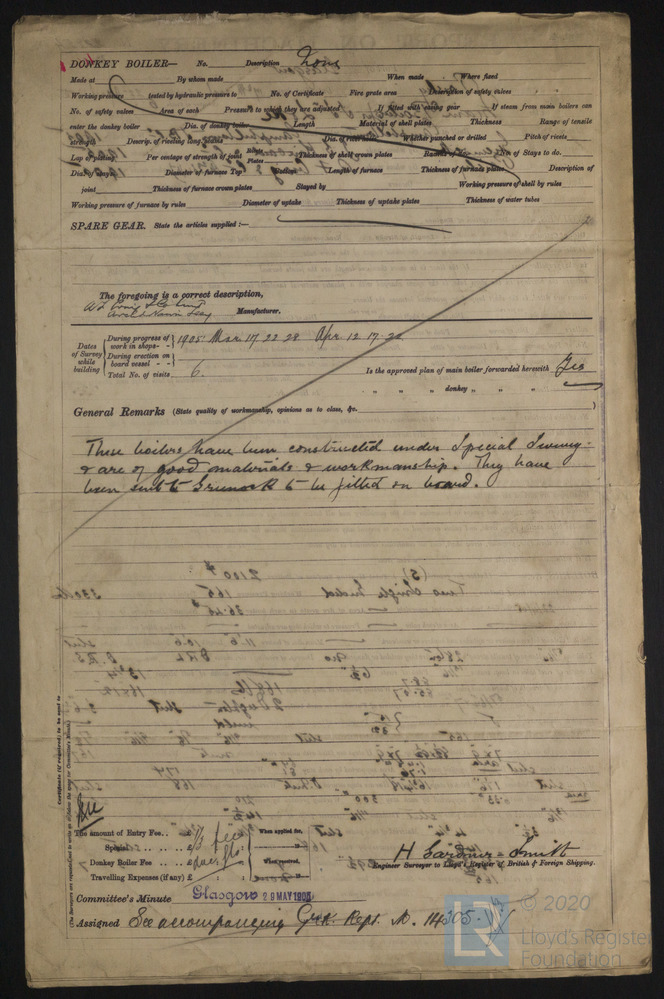 DONKEY BOILER— No. Description None
Made at By whom made When made Where fixed
Working pressure tested by hydraulic pressure to No. of Certificate Fire grate area Description of safety valves
No. of safety valves Area of each Pressure to which they are adjusted If fitted with easing gear If steam from main boilers can
enter the donkey boiler Dia. of donkey boiler Length Material of shell plates Thickness Range of tensile
strength Descrip. of riveting long. seams Dia. of rivet holes Whether punched or drilled Pitch of rivets
Lap of plating Per centage of strength of joint Rivets Plates Thickness of shell crown plates Radius of do. No. of Stays to do.
Dia. of stays Diameter of furnace Top Bottom Length of furnace Thickness of furnace plates Description of
joint Thickness of furnace crown plates Stayed by Working pressure of shell by rules
Working pressure of furnace by rules Diameter of uptake Thickness of uptake plates Thickness of water tubes
SPARE GEAR. State the articles supplied :—
The foregoing is a correct description,
Manufacturer.
Dates of Survey while building
During progress of work in shops - - 1905: Mar. 17. 22. 28 Apr. 12. 17.
During erection on board vessel - -
Total No. of visits 6. Is the approved plan of main boiler forwarded herewith Yes
" " " donkey " " "
General Remarks (State quality of workmanship, opinions as to class, &c. )
These boilers have been constructed under Special Survey
& are of good materials & workmanship. They have
been sent to Greenock to be fitted on board.
Certificate (if required) to be sent to
(The Surveyors are requested not to write on or below the space for Committee's Minute.)
The amount of Entry Fee . . £ When applied for,
Special . . . . £
Donkey Boiler Fee . . . £ When received,
Travelling Expenses (if any) £
H. Gardner-Smith
Engineer Surveyor to Lloyd's Register of British & Foreign Shipping.
Committee's Minute Glasgow 29 MAY 1905
Assigned See accompanying Grk. Rept. No. 14305.
© 2020
LR
Lloyd's Register
Foundation